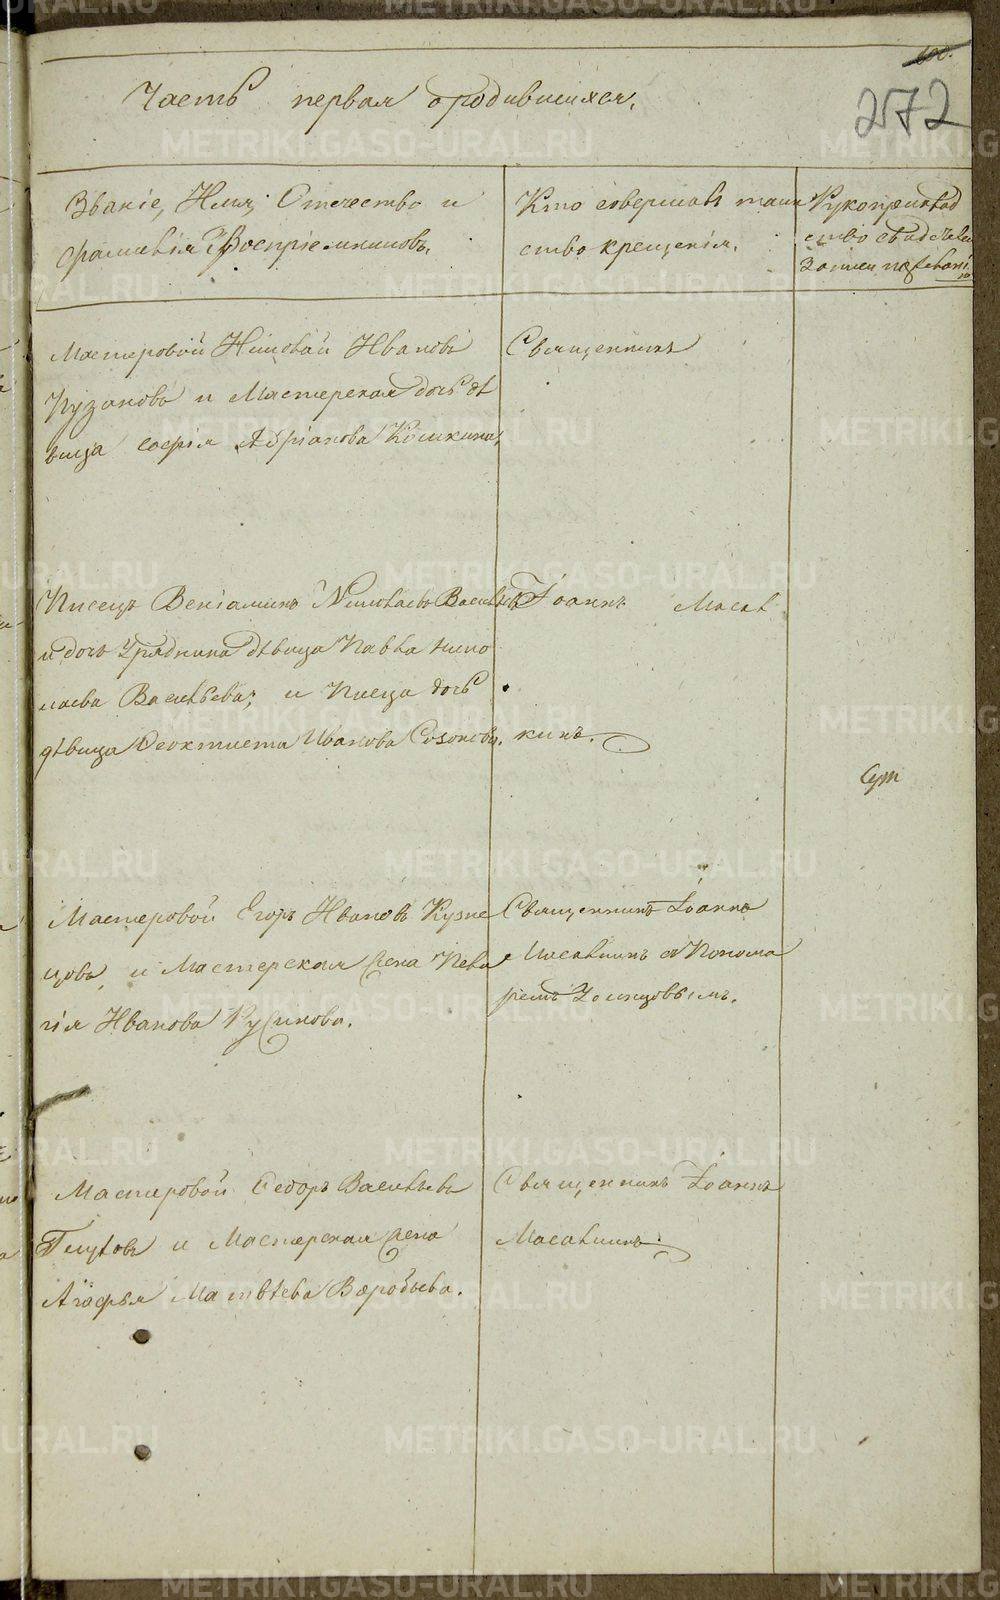 600.
Часть первая о родившихся.
272
Званіе, Имя, Отечество и
фамилія Воспріемниковъ.
Кто совершалъ таин
ство крещенія.
Рукоприклад
ство свадетелей
записи по желані
ю
Мастеровой Ивановъ
Пузановъ и Мастерская дочь дѣ
вица софія Адріанова Кошкина,
Священникъ
Писецъ Веніаминъ Николаевъ Васильевъ
и дочь Урядника дѣвица Павла Нико
лаева Васильева, и Писца дочь
дѣвица Феоктиста Иванова Созонова.
Іоаннъ Масал
кинъ.
Мастеровой Егоръ Ивановъ Кузне
цовъ, и Мастерская жена Пела
гія Иванова Русинова.
Священникъ Іоаннъ
Масалкинъ съ Понома
ремъ
Мастеровой Федоръ Васильевъ
и Мастерская жена
Агафья Матвѣева Воробьева.
Священникъ Іоаннъ
Масалкинъ
METRIKI.GASO-URAL.RU